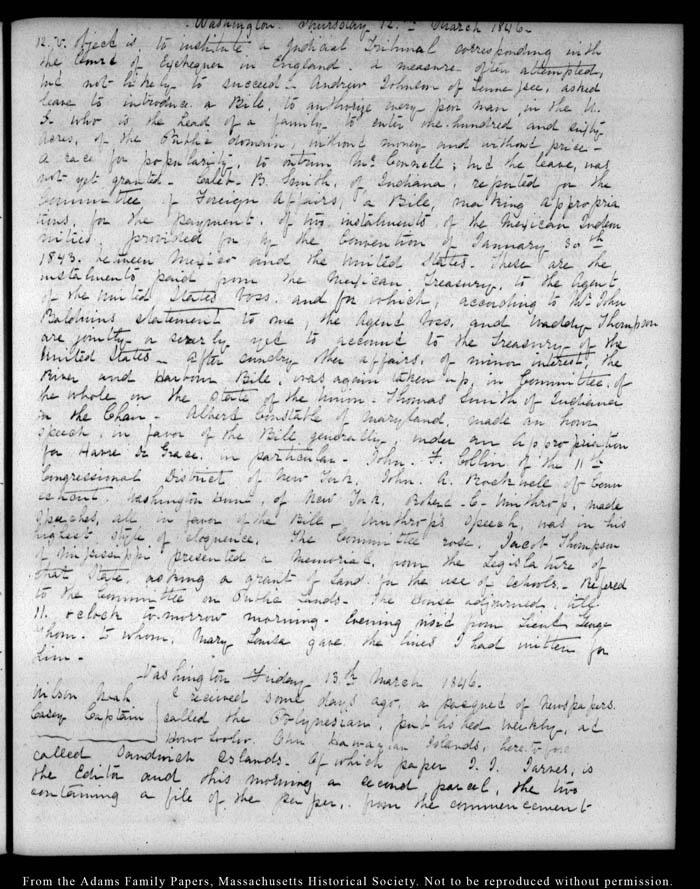 Washington. Thursday 12th March 1846.
12. V. object is, to institute a Judicial Tribunal corresponding with
the Court of Exchequer in England. a measure often attempted,
but not likely to succeed. Andrew Johnson of Tennessee, asked
leave to introduce a Bill, to authorize every poor man, in the U.
S. who is the head of a family to enter one hundred and sixty
Acres, of the Public domain, without money and without price.
A race for popularity, to outrun McConnell; but the leave, was
not yet granted. Caleb B. Smith, of Indiana, reported for the
Committee of Foreign Affairs, a Bill, making appropria
tions, for the payment, of two instalments, of the Mexican Indem
nities, provided for by the Convention of January 30th
1843. between Mexico and the United States. These are the
instalments paid from the Mexican Treasury, to the Agent
of the United States Voss, and for which, according to Mr John
Baldwins statement to me, the Agent Voss, and Waddy Thompson
are jointly or severly yet to account to the Treasury of the
United States. After sundry other affairs, of minor interest, the
River and Harbour Bill, was again taken up, in Committee, of
the whole on the state of the Union. Thomas Smith of Indiana
in the Chair. Albert Constable of Maryland, made an hour
speech, in favor of the Bill generally, under an appropriation
for Havre de Grace, in particular. John. F. Collin of the 11th
Congressional District of New York. John. A. Rockwell of Conn
ecticut, Washington Hunt, of New York, Robert C. Winthrop, made
Speeches, all in favor of the Bill. Winthrop's Speech, was in his
highest style of eloquence. The Committee rose. Jacob Thompson
of Mississippi presented a Memorial, from the Legislature of
that State, asking a grant of Land for the use of Schools. Referred
to the Committee on Public Lands. The House adjourned, till
11. o'clock to-morrow morning. Evening visit from Lieut
Thom. to whom, Mary Louisa gave the lines I had written for
him.
Washington Friday 13th March 1846.
Wilson Noah I received some days ago, a pacquet of Newspapers.
Casey Captain called the Polynesian, published weekly, at
Hono-loolu. Ohu Hawaiian Islands, heretofore
called Sandwich Islands. Of which paper J. J. Jarves, is
the Editor and this morning a second parcel, the two
containing a file of the paper, from the commencement
From the Adams Family Papers, Massachusetts Historical Society. Not to be reproduced without permission.